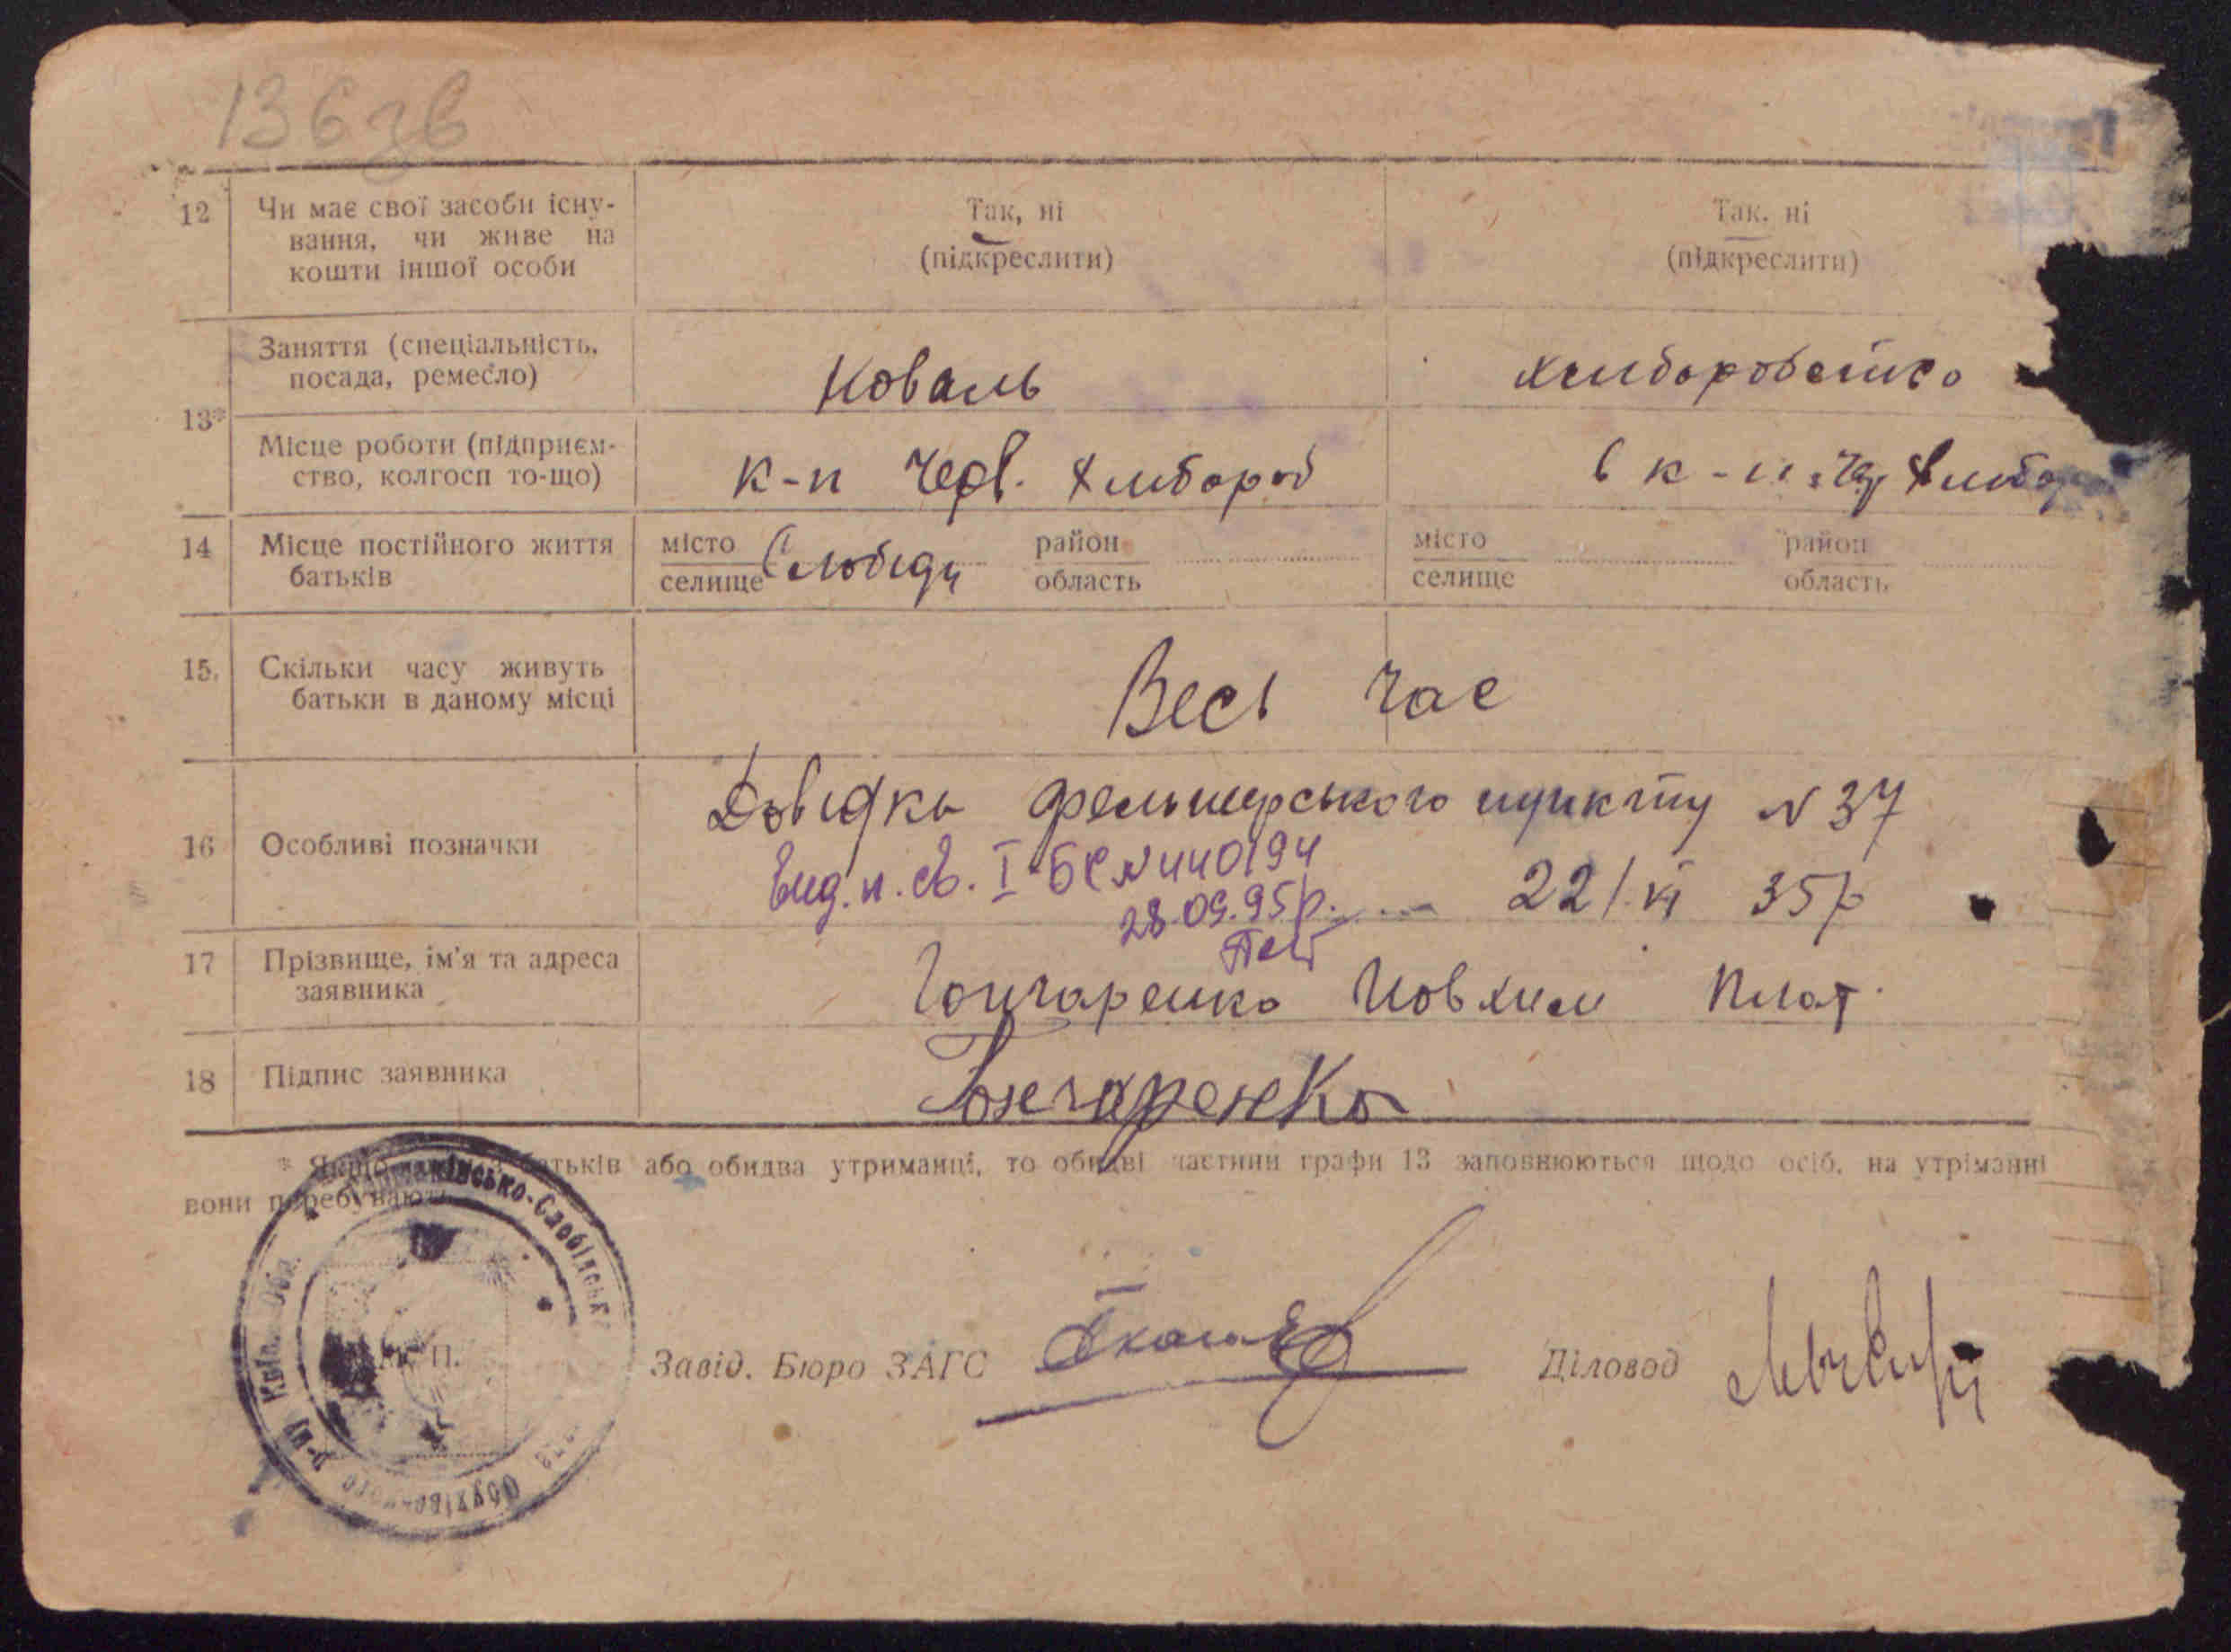 136зв
12 Чи має свої засоби існу-
вання, чи живе на
кошти іншої особи
Так, ні
(підкреслити)
Так, ні
(підкреслити)
13*
Заняття (спеціальність,
посада, ремесло)
Коваль
хлибороб
Місце роботи (підприєм-
ство, колгосп то-що)
к-п Черв. Хлибороб
в к-п Чер Хлибор
14 Місце постійного життя
батьків
місто
селище
Слобиди
район
область
місто
селище
район
область
15. Скільки часу живуть
батьки в даному місці
Весь час
16 Особливі позначки
Довидка фельшерського пункту N 37
Вид. п. св. I-БС N 440194
28.09.95р.
22/VI 35р
17 Прізвище, ім'я та адреса
заявника
Гончаренко Иовхим Плат.
18 Підпис заявника
Гончаренко
* Якщо батьків або обидва утриманці, то обидві частини графи 13 заповнюються щодо осіб, на утріманні
вони перебувають
івсько-Слобідськ
Обухівського р-ну Київ. Обл.
М. П.
Завід. Бюро ЗАГС
Діловод